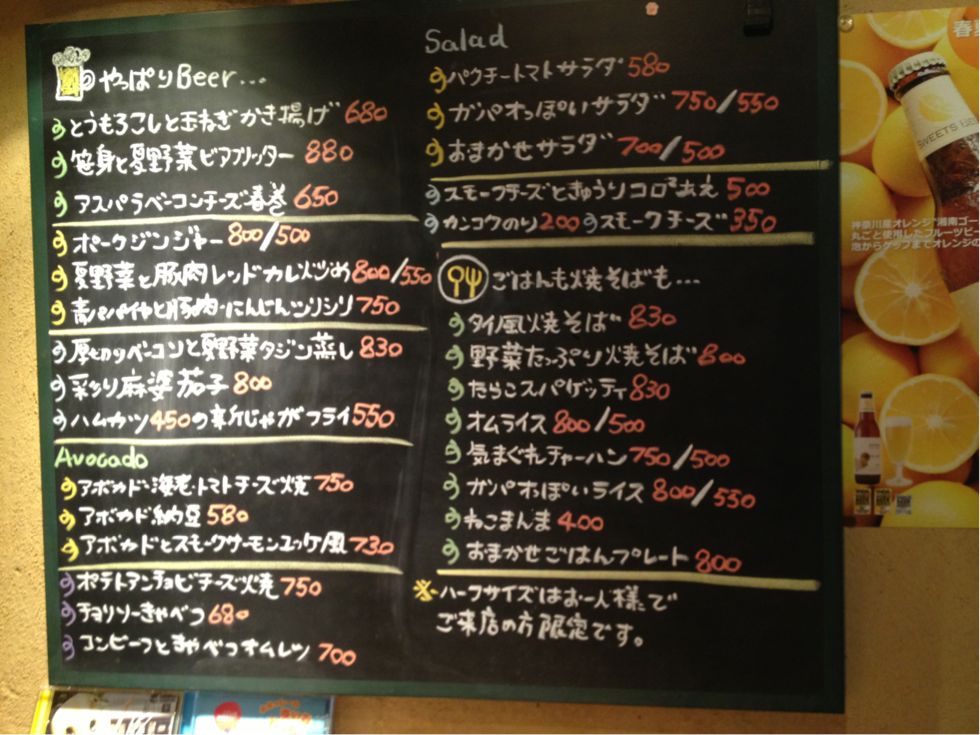 やっぱりBeer...
とうもろこしと玉ねぎかき揚げ 680
笹身と夏野菜ビアフリッター 880
アスパラベーコンチーズ春巻 650
ポークジンジャー 800/500
夏野菜と豚肉レッドカレー炒め 800/550
青パパイヤと豚肉・にんじんシリシリ 750
厚切りベーコンと夏野菜タジン蒸し 830
彩り麻婆茄子 800
ハムカツ 450 新じゃがフライ 550
Avocado
アボカド・海老・トマトチーズ焼 750
アボカド納豆 580
アボカドとスモークサーモンユッケ風 730
ポテトアンチョビチーズ焼 750
チョリソーきゃべつ 680
コンビーフときゃべつオムレツ 700
Salad
パウチートマトサラダ 580
ガパオっぽいサラダ 750/550
おまかせサラダ 700/500
スモークチーズときゅうりコロコロあえ 500
カンコクのり 200 スモークチーズ 350
ごはんも焼そばも...
タイ風焼そば 830
野菜たっぷり焼そば 800
たらこスパゲッティ 830
オムライス 800/500
気まぐれチャーハン 750/500
ガパオっぽいライス 800/550
ねこまんま 400
おまかせごはんプレート 800
※ハーフサイズはお一人様で
ご来店の方限定です。
春
SWEETS BE
神奈川産オレンジ"湘南ゴー
丸ごと使用したフルーツビー
泡からグラフまでオレンジの